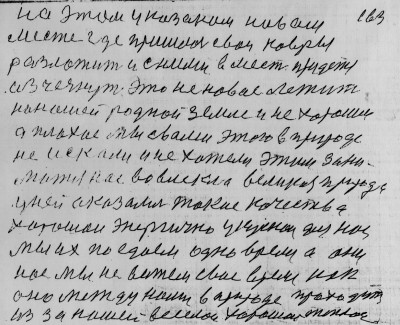 на этом указаном новом 163
месте где пришлось свои ковры
разложит и сними в мест придетя
изчезнут. Это не новое летит
на нашей родной земле и не хорошои
а плохое мы свами этого в природе
не искали и не хотели этим зани-
матя нас вовлекла великоя природа
у ней оказалися токие качества
хорошои энергично
мы их поедаем одно время а они
нас мы не видем свое время как
оно между нами в природе проходит
из за нашей веселой хорошои